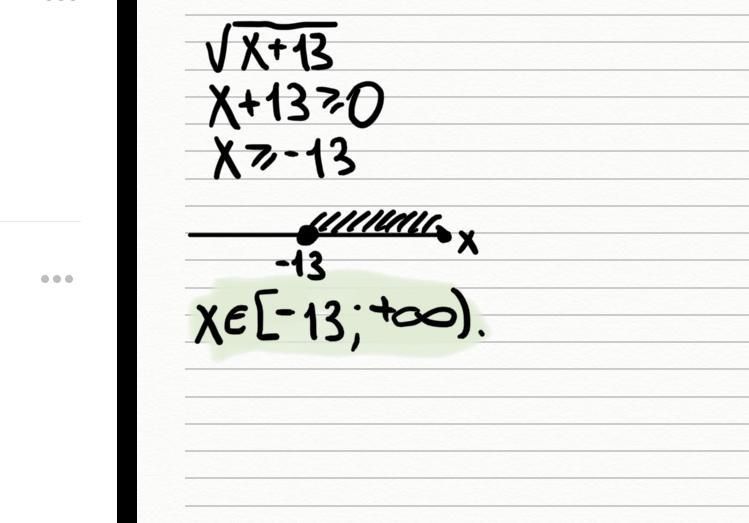 √x+13
x+13⩾0
x⩾-13
x
-13
x∈[-13;+∞).